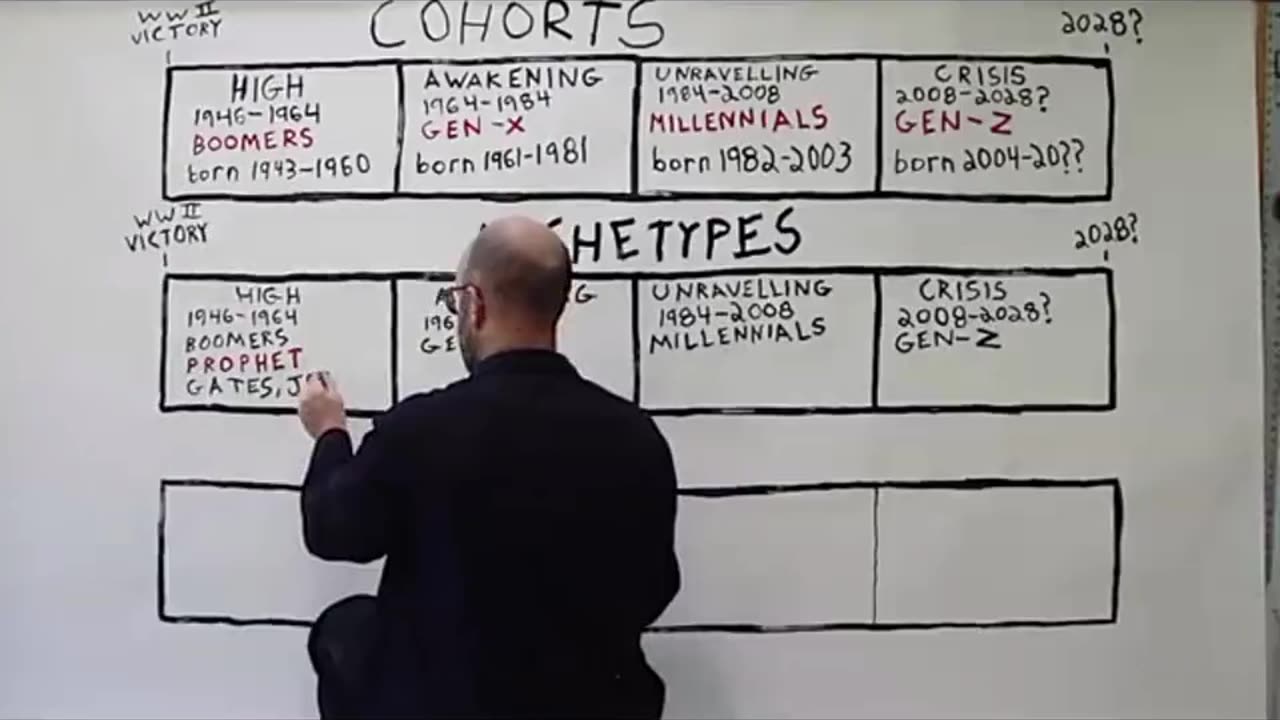 WW II
VICTORY
COHORTS
2028?
HIGH
1946-1964
BOOMERS
born 1943-1960
AWAKENING
1964-1984
GEN-X
born 1961-1981
UNRAVELLING
1984-2008
MILLENNIALS
born 1982-2003
CRISIS
2008-2028?
GEN-Z
born 2004-20??
WW II
VICTORY
HETYPES
2028?
HIGH
1946-1964
BOOMERS
PROPHET
GATES,
UNRAVELLING
1984-2008
MILLENNIALS
CRISIS
2008-2028?
GEN-Z